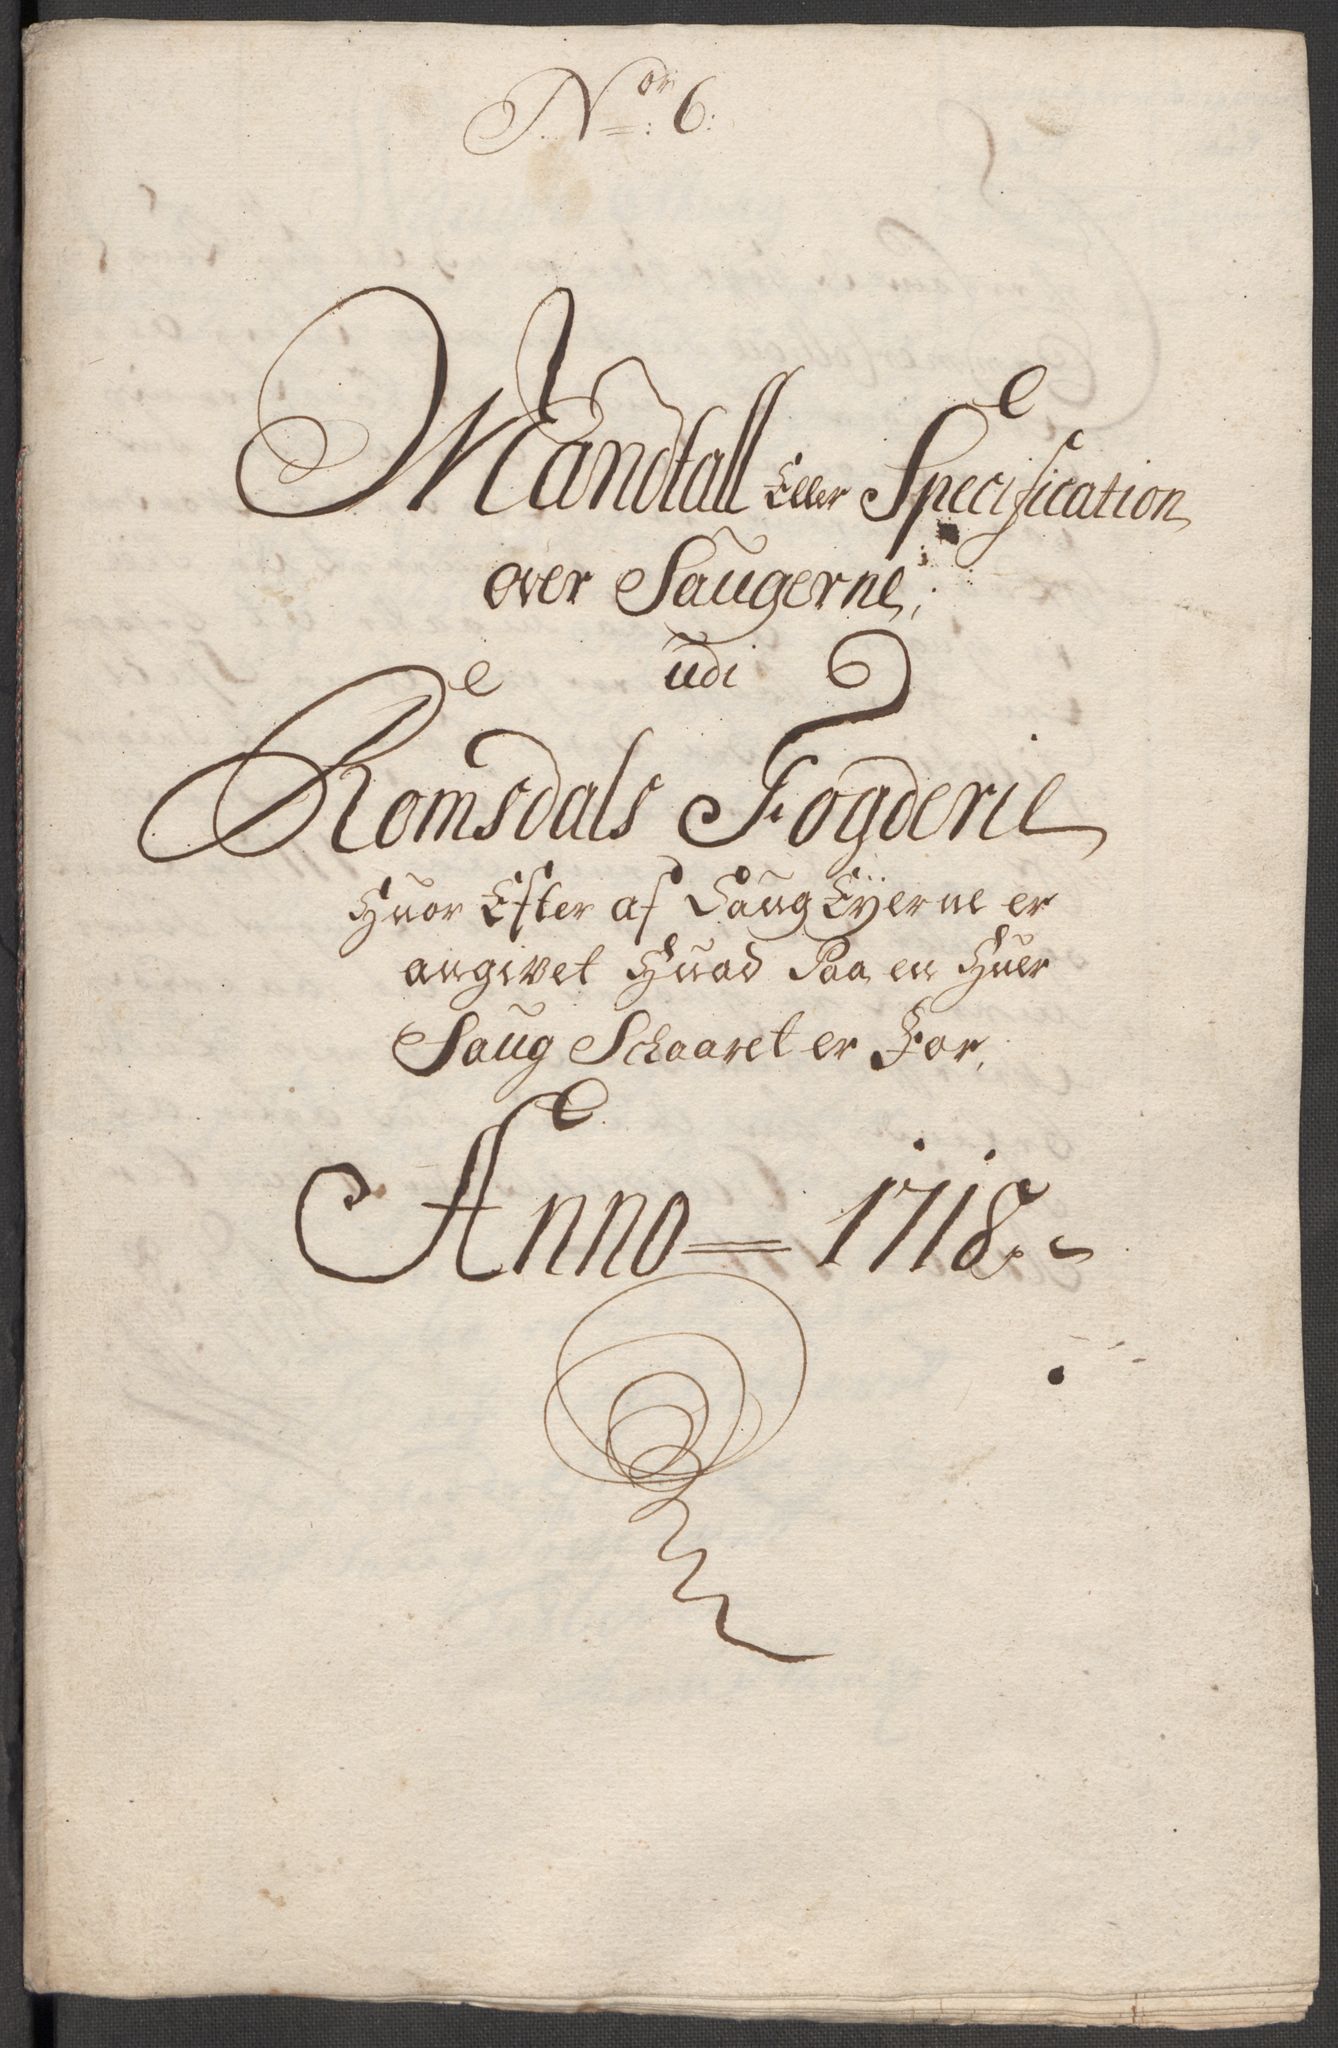 Nor: 6:
Mandtall Eller Specification
over Saugerne,
udi
Romsdals Fogderie
Huor Efter af Saug Eyerne er
angivet Huad Paa en Huer
Saug Schaaret er For,
Anno = 1718.